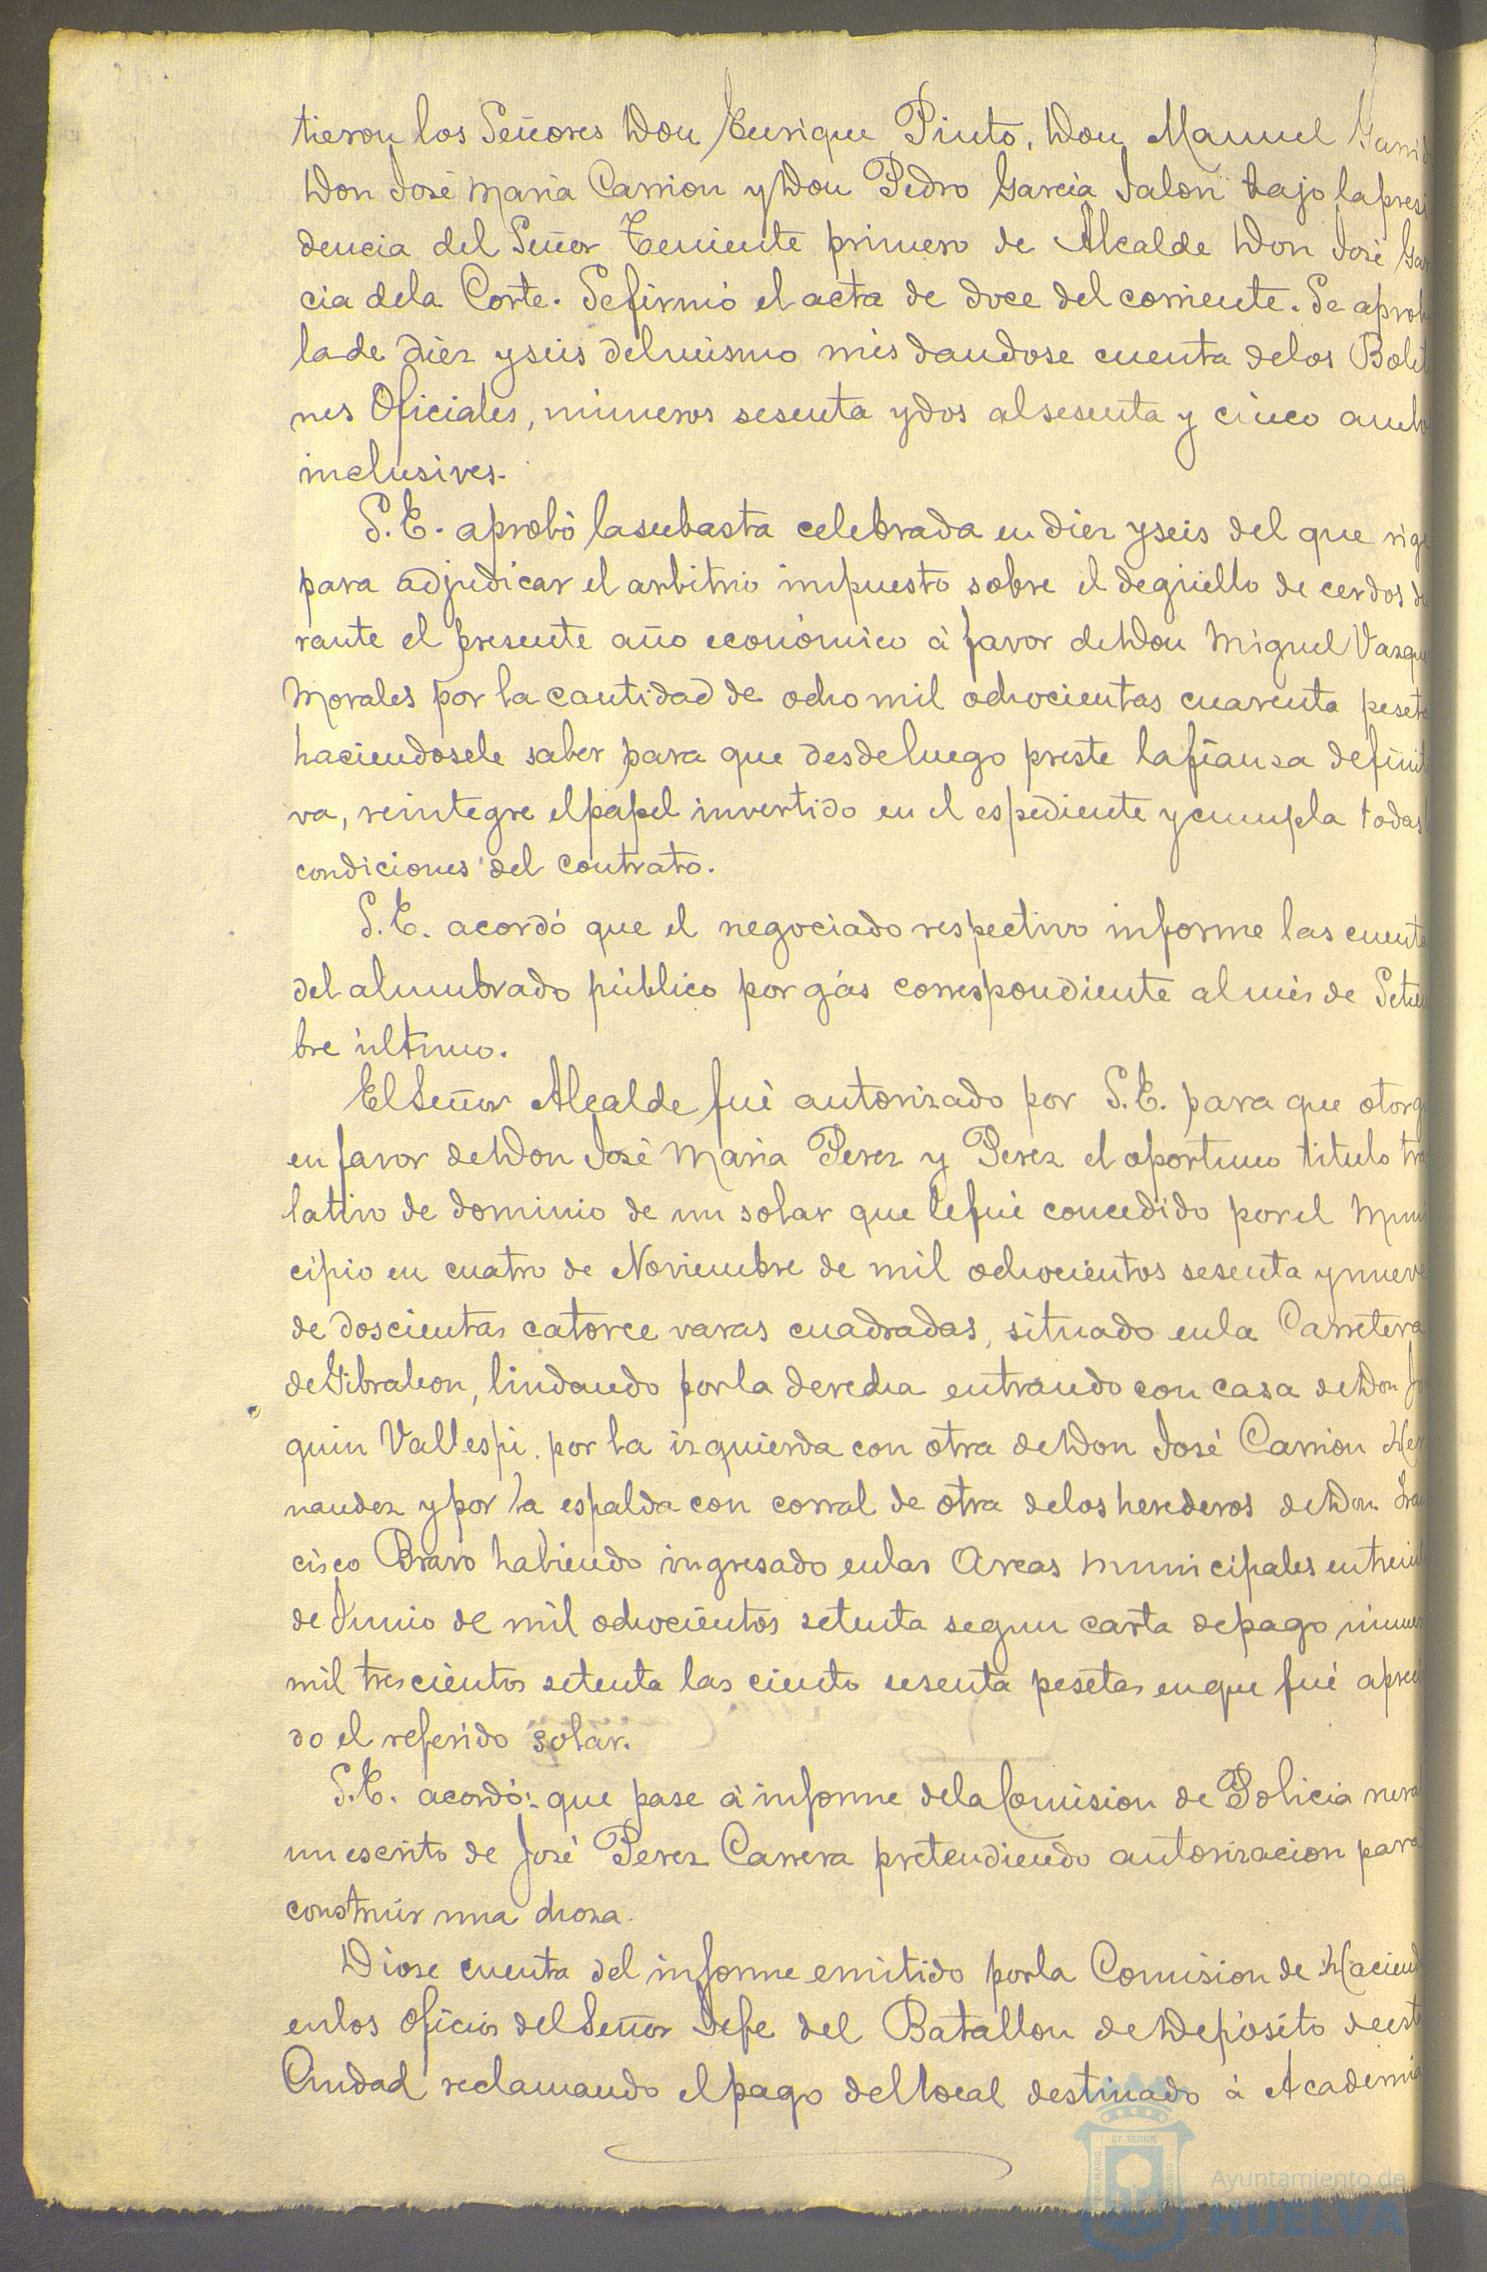 tieron los Señores Don Enrique Pinto, Don Manuel Garrid
Don José Maria Carrion y Don Pedro Garcia Jalon bajo la presi
dencia del Señor Teniente primero de Alcalde Don José Gar
cia de la Corte. Se firmó el acta de doce del corriente. Se aprob
la de diez y seis del mismo mes dandose cuenta de los Boleti
nes Oficiales, números sesenta y dos al sesenta y cinco ambo
inclusives.
S.E. aprobó la subasta celebrada en diez y seis del que rige
para adjudicar el arbitrio impuesto sobre el degüello de cerdos du
rante el presente año económico á favor de Don Miguel Vazque
Morales por la cantidad de ocho mil ochocientas cuarenta peseta
haciendosele saber para que desde luego preste la fianza definiti
va, reintegre el papel invertido en el espediente y cumpla todas
condiciones del contrato.
S.E. acordó que el negociado respectivo informe las cuenta
del alumbrado público por gás correspondiente al mes de Setiem
bre último.
El Señor Alcalde fué autorizado por S.E. para que otorg
en favor de Don José Maria Perez y Perez el oportuno titulo tra
lativo de dominio de un solar que le fué concedido por el Muni
cipio en cuatro de Noviembre de mil ochocientos sesenta y nueve
de doscientas catorce varas cuadradas, situado en la Carretera
de Gibraleon, lindando por la derecha entrando con casa de Don Jo
quin Vallespi. por la izquierda con otra de Don José Carrion Her
nandez y por la espalda con corral de otra de los herederos de Don Fran
cisco Bravo habiendo ingresado en las Arcas municipales en treint
de Junio de mil ochocientos setenta segun carta de pago númer
mil trescientos setenta las ciento sesenta pesetas en que fué apreci
do el referido solar.
S.E. acordó: que pase á informe de la Comision de Policia rural
un escrito de José Perez Carrera pretendiendo autorizacion para
construir una choza.
Diose cuenta del informe emitido por la Comision de Haciend
en los oficios del Señor Jefe del Batallon de Depósito de est
Ciudad reclamando el pago del local destinado á Academia
Ayuntamiento de
HUELVA